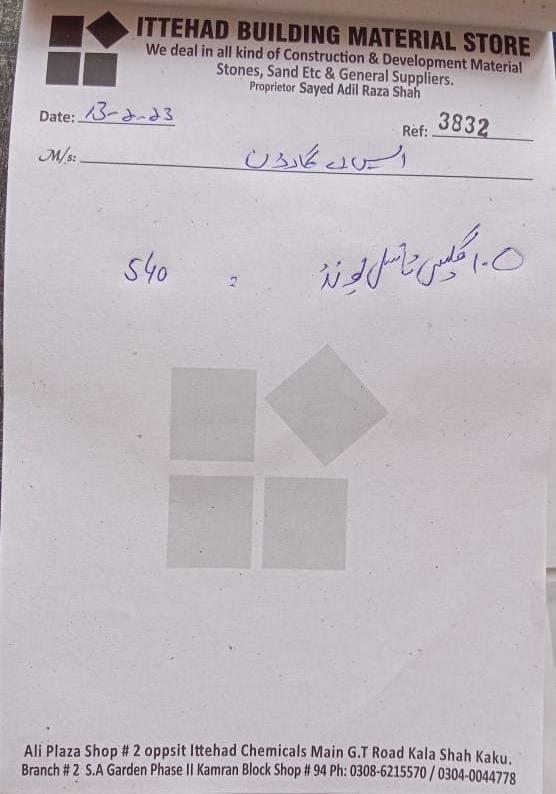 ITTEHAD BUILDING MATERIAL STORE
We deal in all kind of Construction & Development Material
Stones, Sand Etc & General Suppliers.
Proprietor Sayed Adil Raza Shah
Date: 13-2-23
Ref: 3832
M/s: ایس اے گارڈن
540
Ali Plaza Shop # 2 oppsit Ittehad Chemicals Main G.T Road Kala Shah Kaku.
Branch # 2 S.A Garden Phase II Kamran Block Shop # 94 Ph: 0308-6215570 / 0304-0044778